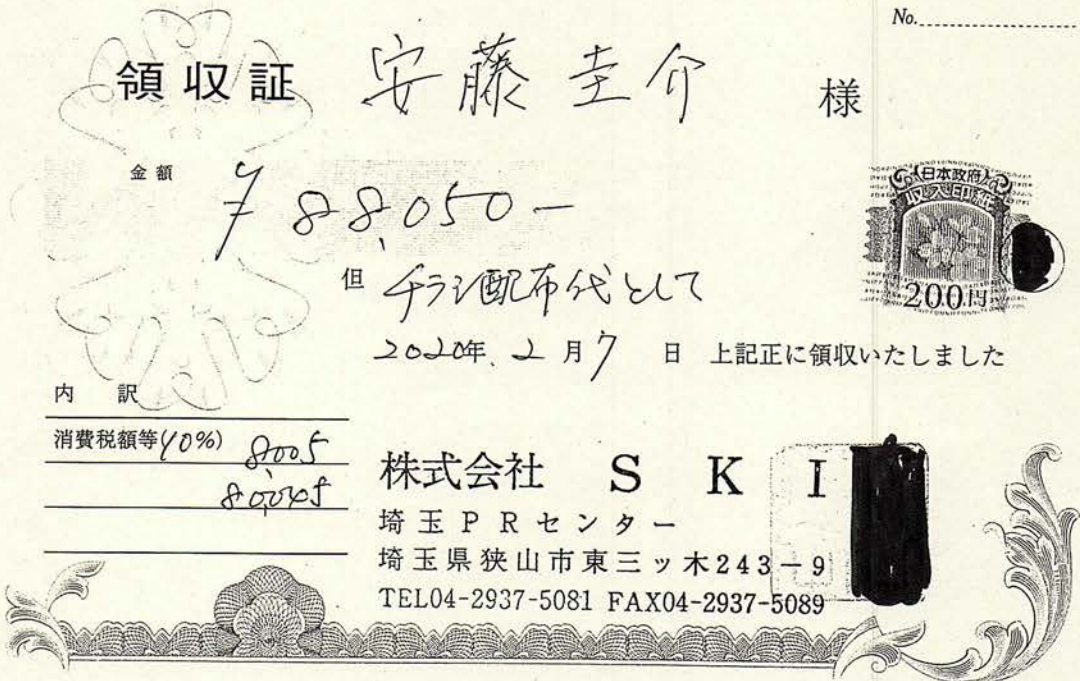 No.
領収証 安藤圭介 様
金額 ¥88,050-
日本政府
収入印紙
200円
但 チラシ配布代として
2020年 2月7日 上記正に領収いたしました
内訳
消費税額等(10%) 8,005
80,045
株式会社 SKI
埼玉PRセンター
埼玉県狭山市東三ッ木243-9
TEL04-2937-5081 FAX04-2937-5089